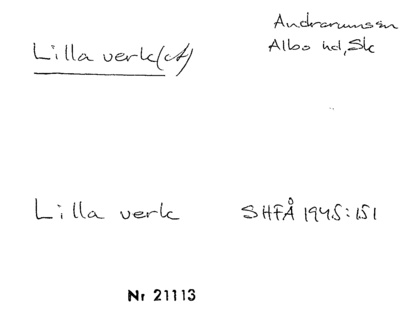 Andrarumssn
Albo hd, Sk
Lilla verk(et)
Lilla verk SHFÅ 1945:151
Nr 21113